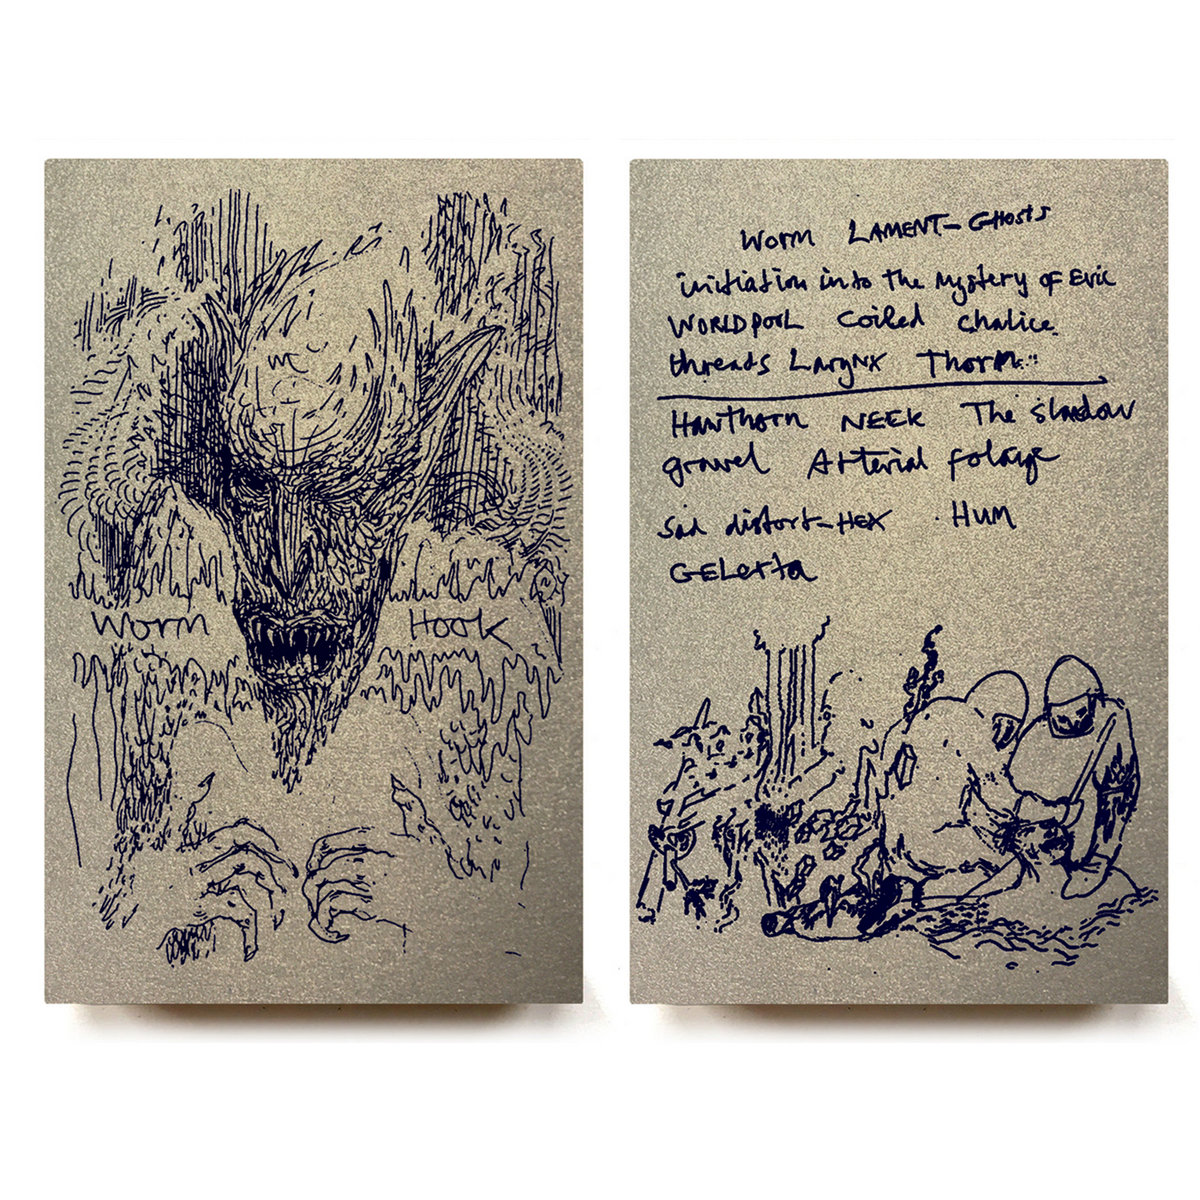 Worm Hook
Worm LAMENT-GHosts
initiation into The Mystery of Evil
WORLDPOOL Coiled Chalice
threads Larynx Thorn
Hawthorn NEEK The Shadow
gravel Arterial foliage
sad distort-HEX HUM
GELexta